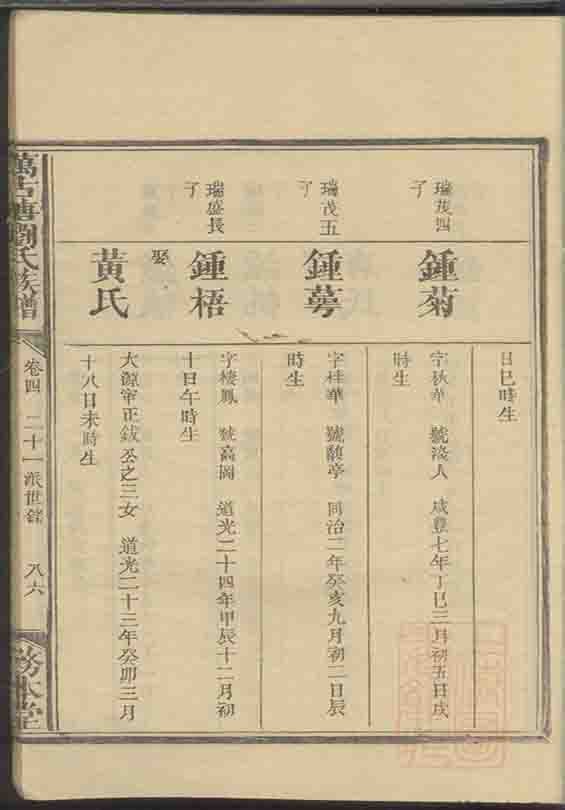 日巳時生
瑞茂四
子
鍾菊
字秋華 號淺人 咸豐七年丁巳三月初五日戌
時生
瑞茂五
子
鍾蕚
字桂華 號馥亭 同治二年癸亥九月初二日辰
時生
瑞盛長
子
鍾梧
字棲鳳 號高岡 道光二十四年甲辰十二月初
十日午時生
娶
黃氏
大源甯正鈸公之三女 道光二十三年癸卯三月
十八日未時生
萬古塘劉氏族譜
卷四 二十一派世錄
八六
務本堂